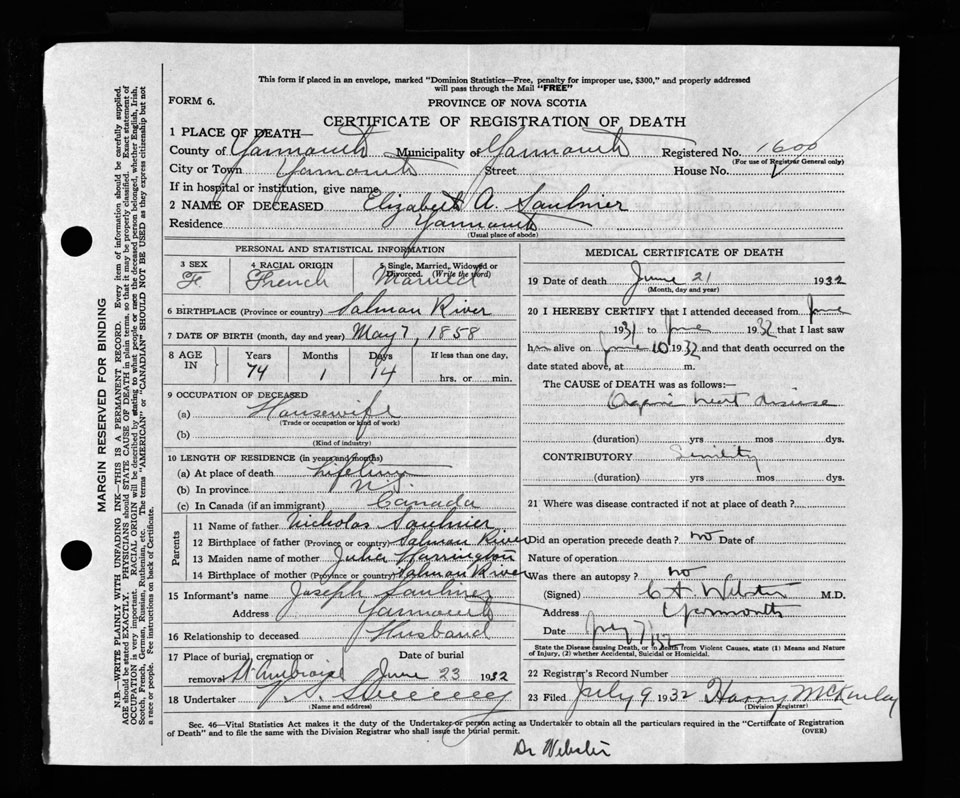 This form if placed in an envelope, marked "Dominion Statistics—Free, penalty for improper use, $300," and properly addressed
will pass through the Mail "FREE"
FORM 6.
PROVINCE OF NOVA SCOTIA
CERTIFICATE OF REGISTRATION OF DEATH
1 PLACE OF DEATH—
County of Yarmouth Municipality of Yarmouth Registered No. 1600
(For use of Registrar General only)
City or Town Yarmouth Street House No.
If in hospital or institution, give name
2 NAME OF DECEASED Elizabeth A. Saulnier
Residence Yarmouth
(Usual place of abode)
PERSONAL AND STATISTICAL INFORMATION
3 SEX 4 RACIAL ORIGIN 5 Single, Married, Widowed or
Divorced. (Write the word)
F. French Married
6 BIRTHPLACE (Province or country) Salmon River
7 DATE OF BIRTH (month, day and year) May 7, 1858
8 AGE IN Years Months Days If less than one day,
74 1 14 hrs. or min.
9 OCCUPATION OF DECEASED
(a) Housewife
(Trade or occupation or kind of work)
(b)
(Kind of industry)
10 LENGTH OF RESIDENCE (in years and months)
(a) At place of death lifetime
(b) In province N.S.
(c) In Canada (if an immigrant) Canada
Parents
11 Name of father Nicholas Saulnier
12 Birthplace of father (Province or country) Salmon River
13 Maiden name of mother Julia Harrington
14 Birthplace of mother (Province or country) Salmon River
15 Informant's name Joseph Saulnier
Address Yarmouth
16 Relationship to deceased Husband
17 Place of burial, cremation or Date of burial
removal St Ambroise June 23 1932
18 Undertaker V. S. Sweeney
(Name and address)
MEDICAL CERTIFICATE OF DEATH
19 Date of death June 21 1932
(Month, day and year)
20 I HEREBY CERTIFY that I attended deceased from June
1931 to June 1932 that I last saw
h alive on June 10 1932 and that death occurred on the
date stated above, at m.
The CAUSE of DEATH was as follows:—
Organic heart disease
(duration) yrs mos dys.
CONTRIBUTORY Senility
(duration) yrs mos dys.
21 Where was disease contracted if not at place of death?
Did an operation precede death? no Date of
Nature of operation
Was there an autopsy? no
(Signed) Webster M.D.
Address Yarmouth
Date
State the Disease causing Death, or in death from Violent Causes, state (1) Means and Nature
of Injury, (2) whether Accidental, Suicidal or Homicidal.
22 Registrar's Record Number
23 Filed July 9 1932 Harry McKinlay
(Division Registrar)
Sec. 46—Vital Statistics Act makes it the duty of the Undertaker or person acting as Undertaker to obtain all the particulars required in the "Certificate of Registration
of Death" and to file the same with the Division Registrar who shall issue the burial permit. (OVER)
Dr Webster
MARGIN RESERVED FOR BINDING
N.B.—WRITE PLAINLY WITH UNFADING INK—THIS IS A PERMANENT RECORD. Every item of information should be carefully supplied.
AGE should be stated EXACTLY. PHYSICIANS should STATE CAUSE OF DEATH in plain terms, so that it may be properly classified. Exact statement of
OCCUPATION is very important. RACIAL ORIGIN will be described by stating to what people or race the deceased person belonged, whether English, Irish,
Scotch, French, German, Russian, Ruthenian, etc. The terms "AMERICAN" or "CANADIAN" SHOULD NOT BE USED as they express citizenship but not
a race or people. See instructions on back of Certificate.